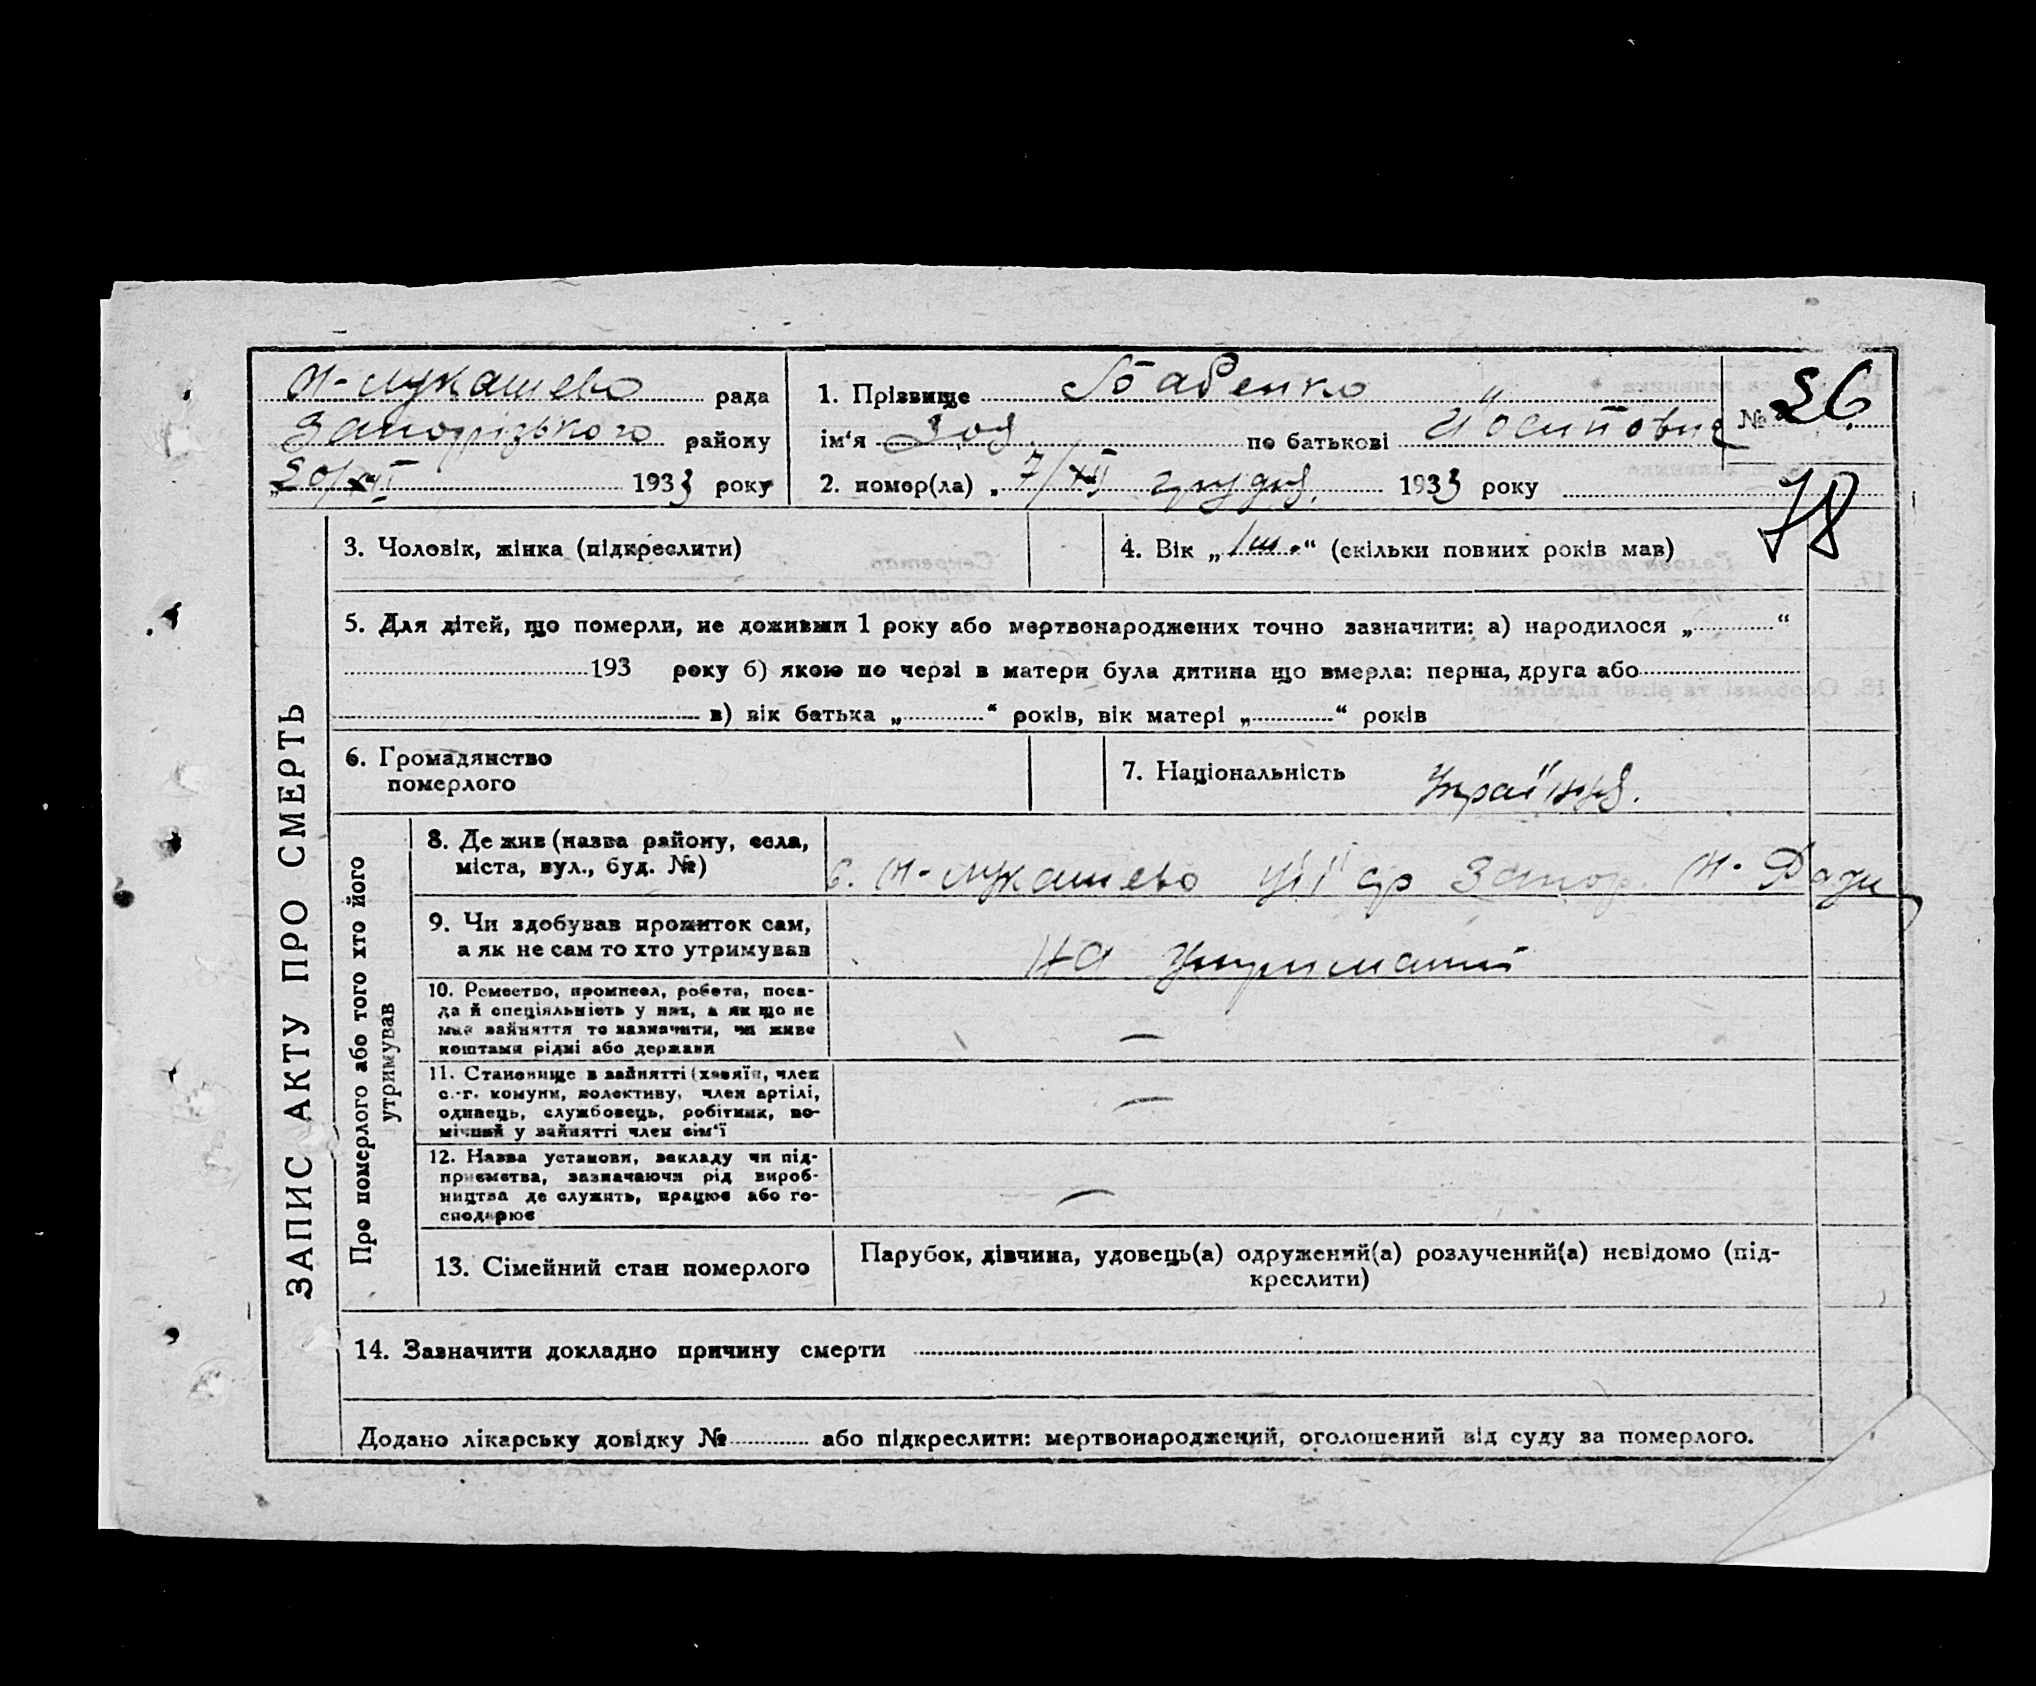 Н-Лукашево рада
Запорізького району
„20/XII 1933 року
1. Прізвище Бабенко
ім‘я Зоя по батькові Йосиповна
2. помер(ла) „ 7/XII грудня. 1933 року
№ 26
78
ЗАПИС АКТУ ПРО СМЕРТЬ
3. Чоловік, жінка (підкреслити)
4. Вік „ 1 м. “ (скільки повних років мав)
5. Для дітей, що померли, не доживши 1 року або мертвонароджених точно зазначити: а) народилося „ “
193 року б) якою по черзі в матери була дитина що вмерла: перша, друга або
в) вік батька „ “ років, вік матері „ “ років
6. Громадянство
померлого
7. Національність Українця.
Про померлого або того хто його
утримував
8. Де жив (назва району, села,
міста, вул., буд. №)
с. Н-Лукашево Запор. Н. Ради
9. Чи здобував прожиток сам,
а як не сам то хто утримував
На Утриманні
10. Ремество, промисел, робота, поса-
да й спеціяльність у них, а як що не
має зайняття то зазначити, чи живе
коштами рідні або держави
—
11. Становище в зайнятті (хазяїн, член
с.-г. комуни, колективу, член артілі,
одинець, службовець, робітник, по-
мічний у зайнятті член сім‘ї
—
12. Назва установи, закладу чи під-
приємства, зазначаючи рід вироб-
ництва де служить, працює або го-
сподарює
—
13. Сімейний стан померлого
Парубок, дівчина, удовець(а) одружений(а) розлучений(а) невідомо (під-
креслити)
14. Зазначити докладно причину смерти
Додано лікарську довідку № або підкреслити: мертвонароджений, оголошений від суду за померлого.